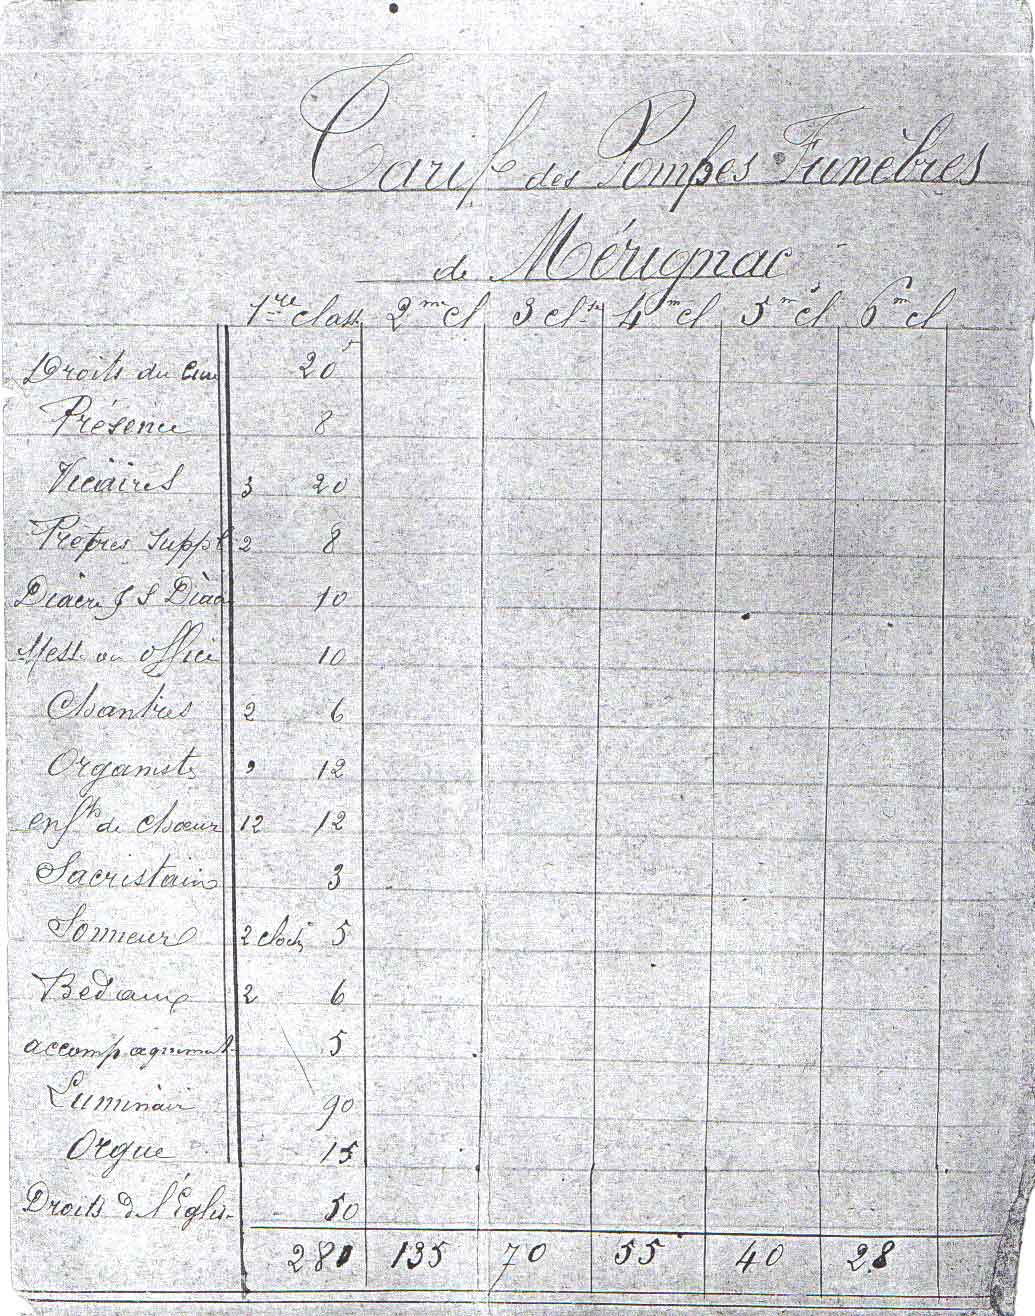 Tarif des Pompes Funèbres
de Mérignac
1re class 2me cl 3 clse 4m cl 5me cl 6m cl
Droits du Curé 20f
Présence 8
Vicaires 3 20
Prêtres suppl 2 8
Diacre & S Diac 10
Messe ou office 10
Chantres 2 6
Organiste 12
enfts de choeur 12 12
Sacristain 3
Sonneur 2 cloch 5
Bedaux 2 6
accompagnement 5
Luminair 90
Orgue 15
Droits de l'Églis 50
280 135 70 55 40 28